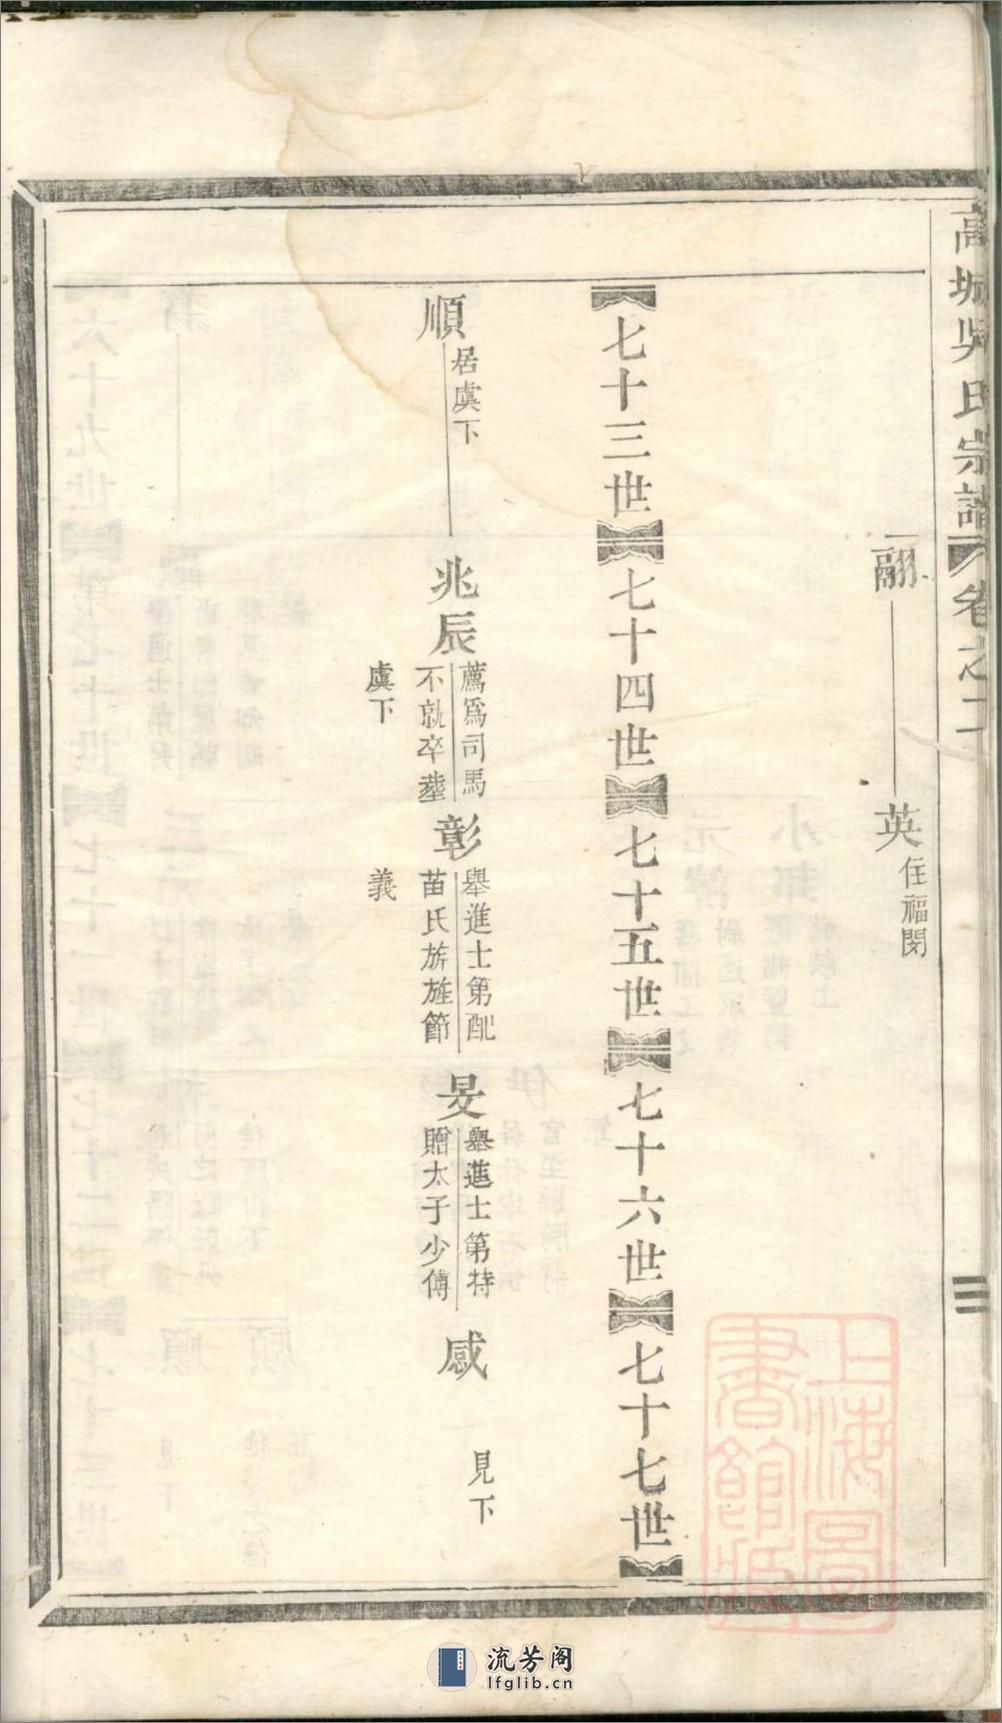 高城吳氏宗譜 卷之二
三
翮 英 住福閔
七十三世 七十四世 七十五世 七十六世 七十七世
順 居虞下
兆辰 薦為司馬
不就卒葬
虞下
彰 舉進士第配
苗氏旂旌節
義
旻 舉進士第特
贈太子少傅
感 見下
上海圖
書館藏
流芳阁
lfglib.cn